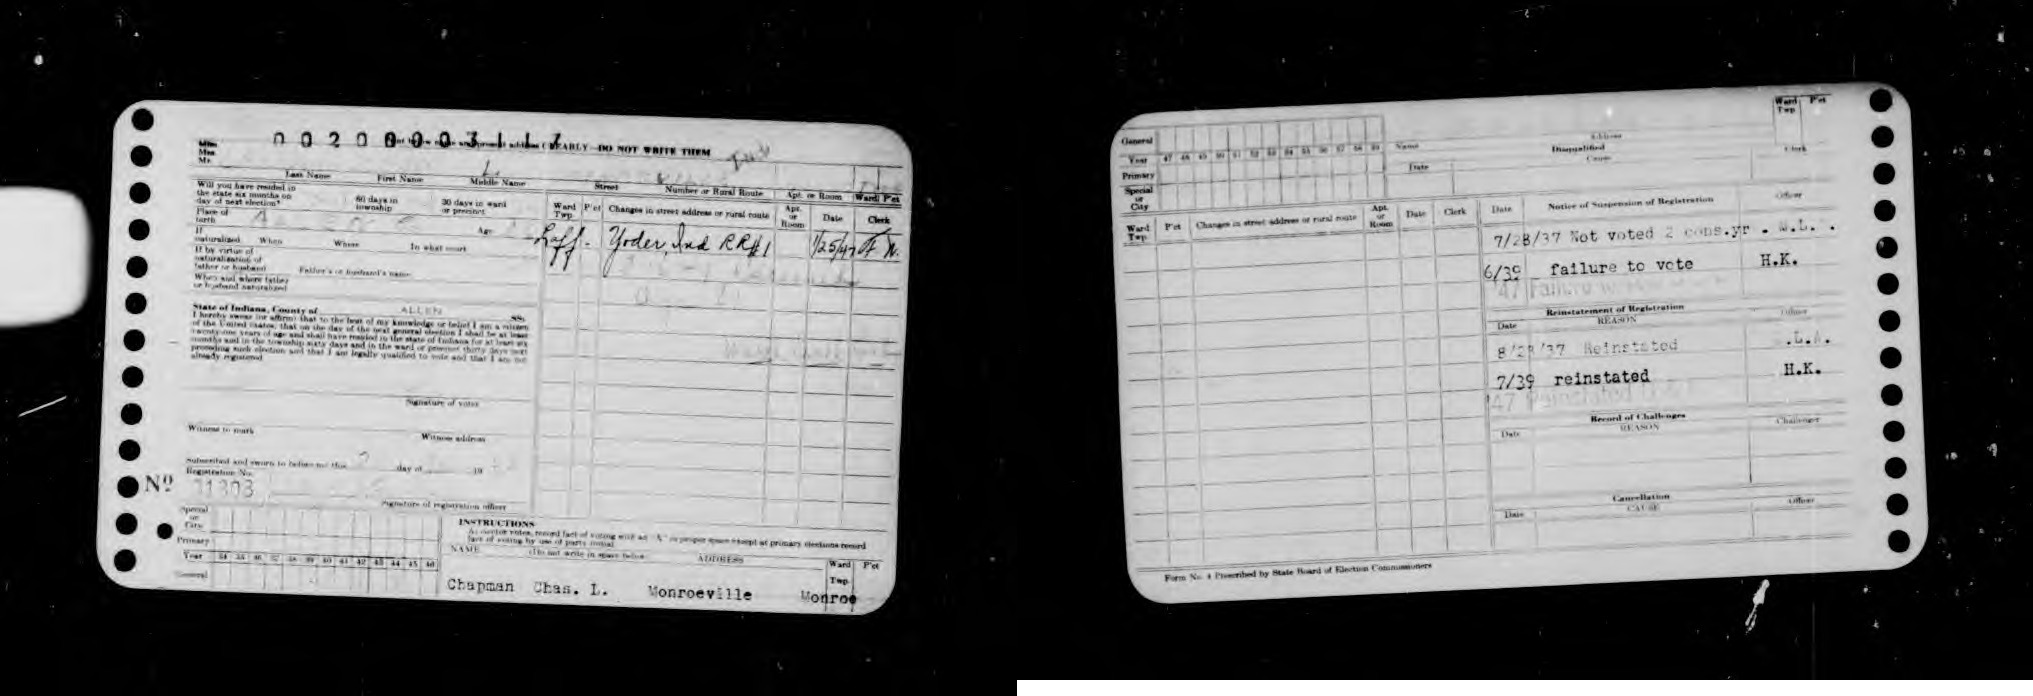 00200003117
Miss
Mrs.
Mr.
CLEARLY—DO NOT WRITE THEM
L.
Last Name First Name Middle Name Street Number or Rural Route Apt. or Room Ward P'ct
Will you have resided in
the state six months on
day of next election?
60 days in
township
30 days in ward
or precinct
Place of
birth
Age
If
naturalized When Where In what court
If by virtue of
naturalization of
father or husband Father's or husband's name
When and where father
or husband naturalized
Ward
Twp. P'ct Changes in street address or rural route Apt.
or
Room Date Clerk
Laff - Yoder, Ind RR#1 1/25/47
State of Indiana, County of ALLEN SS:
I hereby swear (or affirm) that to the best of my knowledge or belief I am a citizen
of the United States, that on the day of the next general election I shall be at least
twenty-one years of age and shall have resided in the state of Indiana for at least six
months and in the township sixty days and in the ward or precinct thirty days next
preceding such election and that I am legally qualified to vote and that I am not
already registered
Signature of voter
Witness to mark Witness address
Subscribed and sworn to before me this day of 19
Registration No.
Nº
Signature of registration officer
Special
or
City
Primary
Year 34 35 36 37 38 39 40 41 42 43 44 45 46
General
INSTRUCTIONS
As elector votes, record fact of voting with an "X" in proper space except at primary elections record
fact of voting by use of party initial
NAME (Do not write in space below) ADDRESS Ward
Twp. P'ct
Chapman Chas. L. Monroeville Monroe
General
Year 47 48 49 50 51 52 53 54 55 56 57 58 59
Primary
Special
or
City
Name Address Ward
Twp. P'ct
Disqualified
Date Cause Clerk
Ward
Twp. P'ct Changes in street address or rural route Apt.
or
Room Date Clerk
Date Notice of Suspension of Registration Officer
7/28/37 Not voted 2 cons.yr .
6/39 failure to vote H.K.
'47
Reinstatement of Registration
Date REASON Officer
8/28/37 Reinstated
7/39 reinstated H.K.
'47 Reinstated
Record of Challenges
Date REASON Challenger
Cancellation
Date CAUSE Officer
Form No. 4 Prescribed by State Board of Election Commissioners